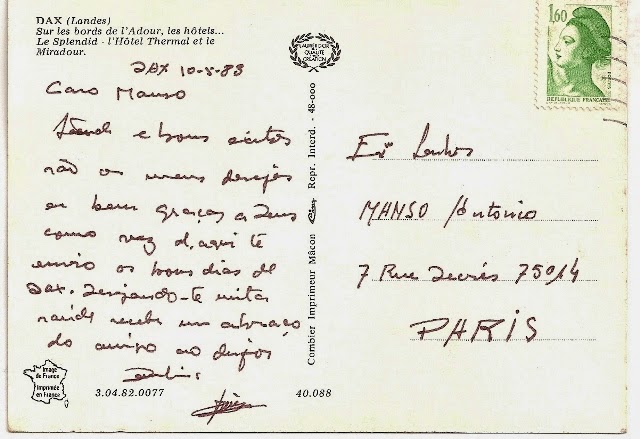 DAX (Landes)
Sur les bords de l'Adour, les hôtels...
Le Splendid - l'Hôtel Thermal et le
Miradour.
LAURIER D'OR
QUALITÉ
CRÉATION
1,60
REPUBLIQUE FRANÇAISE
DAX 10-5-83
Caro Manso
e bons
são os meus desejos
eu bem graças a Deus
como vez d,aqui te
envio os bons dias de
Dax. Desejando-te muita
saúde recebe um abraço
do amigo ao dispor
MANSO Antonio
7 Rue Decrés 75014
PARIS
Combier Imprimeur Mâcon Cim Repr. Interd. - 48-000
Image
de France
Imprimée
en France
3.04.82.0077
40.088